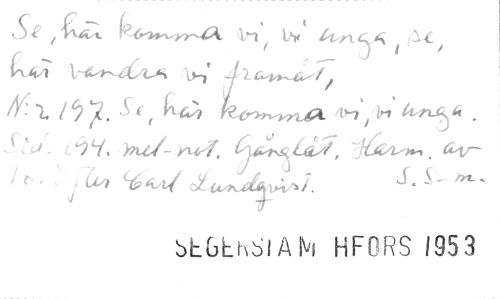 Se, här komma vi, vi unga, se,
här vandra vi framåt,
N:r 197. Se, här komma vi, vi unga.
Sid. 194. mel-not. Gånglåt. Harm. av
To. Efter Carl Lundqvist. S. S-m.
SEGERSTAM HFORS 1953